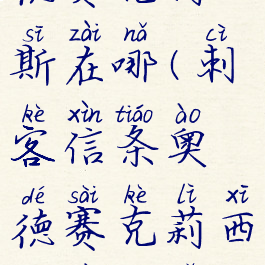 sī zài nǎ cì
斯在哪(刺
kè xìn tiáo ào
客信条奥
dé sài kè lì xī
德赛克莉西